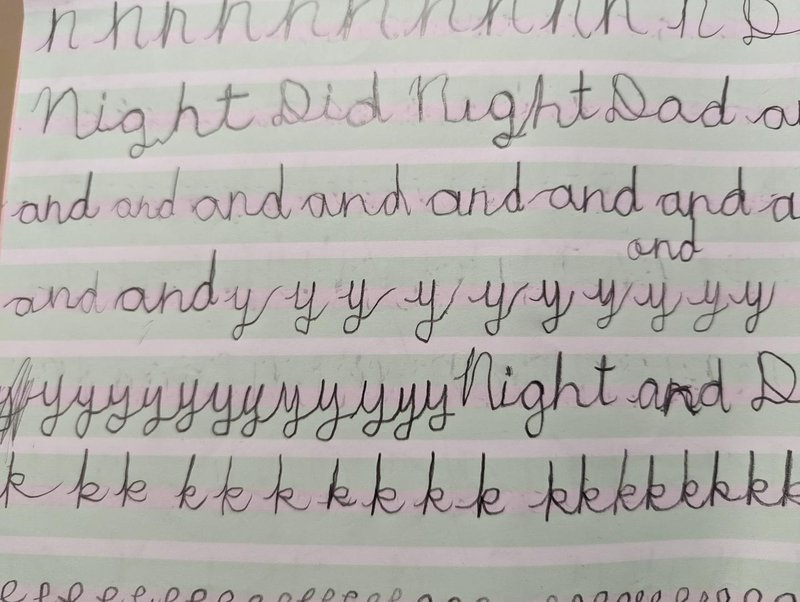 n n n n n n n n n n n n D
Night Did Night Dad a
and and and and and and and a
and
and and y y y y y y y y y y
y y y y y y y y y y y y Night and D
k k k k k k k k k k k k k k k k k
e e e e e e e e e e e e e